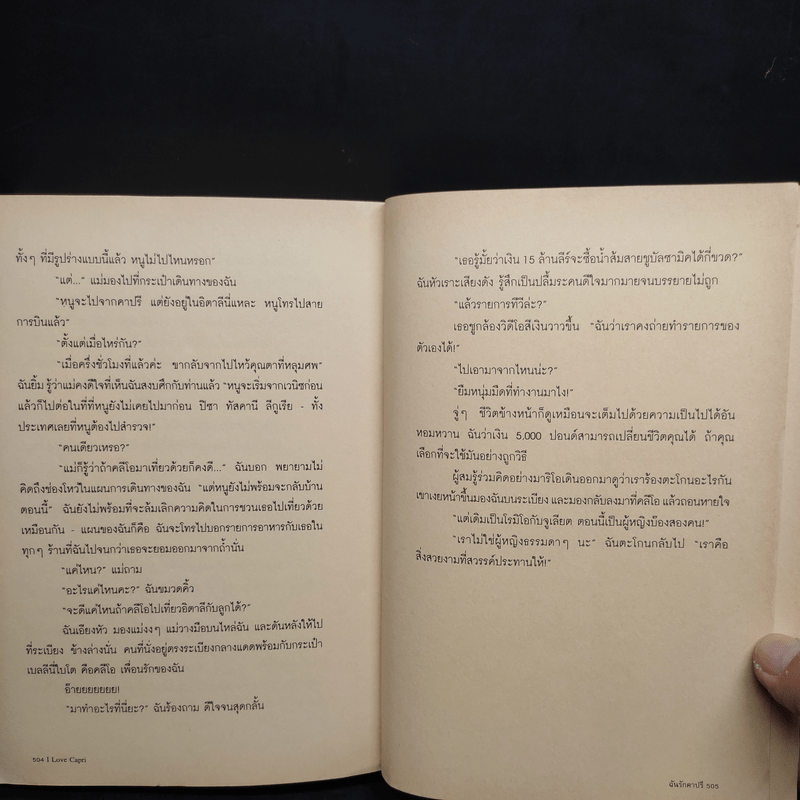 ทั้งๆ ที่มีรูปร่างแบบนี้แล้ว หนูไม่ไปไหนหรอก"
"แต่..." แม่มองไปที่กระเป๋าเดินทางของฉัน
"หนูจะไปจากคาปรี แต่ยังอยู่ในอิตาลีนี่แหละ หนูโทรไปสาย
การบินแล้ว"
"ตั้งแต่เมื่อไหร่กัน?"
"เมื่อครึ่งชั่วโมงที่แล้วค่ะ ขากลับจากไปไหว้คุณตาที่หลุมศพ"
ฉันยิ้ม รู้ว่าแม่คงดีใจที่เห็นฉันสงบศึกกับท่านแล้ว "หนูจะเริ่มจากเวนิซก่อน
แล้วก็ไปต่อในที่ที่หนูยังไม่เคยไปมาก่อน ปิซา ทัสคานี ลีกูเรีย - ทั้ง
ประเทศเลยที่หนูต้องไปสำรวจ!"
"คนเดียวเหรอ?"
"แม่ก็รู้ว่าถ้าคลีโอมาเที่ยวด้วยก็คงดี..." ฉันบอก พยายามไม่
คิดถึงช่องโหว่ในแผนการเดินทางของฉัน "แต่หนูยังไม่พร้อมจะกลับบ้าน
ตอนนี้" ฉันยังไม่พร้อมที่จะล้มเลิกความคิดในการชวนเธอไปเที่ยวด้วย
เหมือนกัน - แผนของฉันก็คือ ฉันจะโทรไปบอกรายการอาหารกับเธอใน
ทุกๆ ร้านที่ฉันไปจนกว่าเธอจะยอมออกมาจากถ้ำนั่น
"แค่ไหน?" แม่ถาม
"อะไรแค่ไหนคะ?" ฉันขมวดคิ้ว
"จะดีแค่ไหนถ้าคลีโอไปเที่ยวอิตาลีกับลูกได้?"
ฉันเอียงหัว มองแม่งงๆ แม่วางมือบนไหล่ฉัน และดันหลังให้ไป
ที่ระเบียง ข้างล่างนั่น คนที่นั่งอยู่ตรงระเบียงกลางแดดพร้อมกับกระเป๋า
เบลลีนี่ใบโต คือคลีโอ เพื่อนรักของฉัน
อ๊ายยยยยยย!
"มาทำอะไรที่นี่ยะ?" ฉันร้องถาม ดีใจจนสุดกลั้น
504 I Love Capri
"เธอรู้มั้ยว่าเงิน 15 ล้านลีร์จะซื้อน้ำส้มสายชูบัลซามิคได้กี่ขวด?"
ฉันหัวเราะเสียงดัง รู้สึกเป็นปลื้มระคนดีใจมากมายจนบรรยายไม่ถูก
"แล้วรายการทีวีล่ะ?"
เธอชูกล้องวิดีโอสีเงินวาวขึ้น "ฉันว่าเราคงถ่ายทำรายการของ
ตัวเองได้!"
"ไปเอามาจากไหนน่ะ?"
"ยืมหนุ่มมืดที่ทำงานมาไง!"
จู่ๆ ชีวิตข้างหน้าก็ดูเหมือนจะเต็มไปด้วยความเป็นไปได้อัน
หอมหวาน ฉันว่าเงิน 5,000 ปอนด์สามารถเปลี่ยนชีวิตคุณได้ ถ้าคุณ
เลือกที่จะใช้มันอย่างถูกวิธี
ผู้สมรู้ร่วมคิดอย่างมาริโอเดินออกมาดูว่าเราร้องตะโกนอะไรกัน
เขาเงยหน้าขึ้นมองฉันบนระเบียง และมองกลับลงมาที่คลีโอ แล้วถอนหายใจ
"แต่เดิมเป็นโรมิโอกับจูเลียต ตอนนี้เป็นผู้หญิงบ๊องสองคน!"
"เราไม่ใช่ผู้หญิงธรรมดาๆ นะ" ฉันตะโกนกลับไป "เราคือ
สิ่งสวยงามที่สวรรค์ประทานให้!"
ฉันรักคาปรี 505